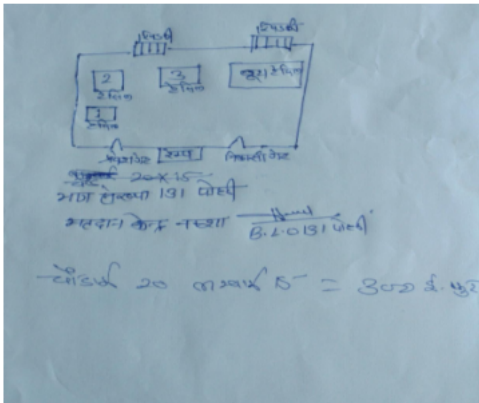 खिडकी खिडकी
2 3
टेबिल टेबिल
1
टेबिल
प्रवेश गेट रेम्प निकासी गेट
20 X 15
भाग संख्या 131 पोहरी
मतदान केन्द्र नक्शा
B.L.O 131 पोहरी
चौडाई 20 लम्बाई 15 = 300 ई. फुट